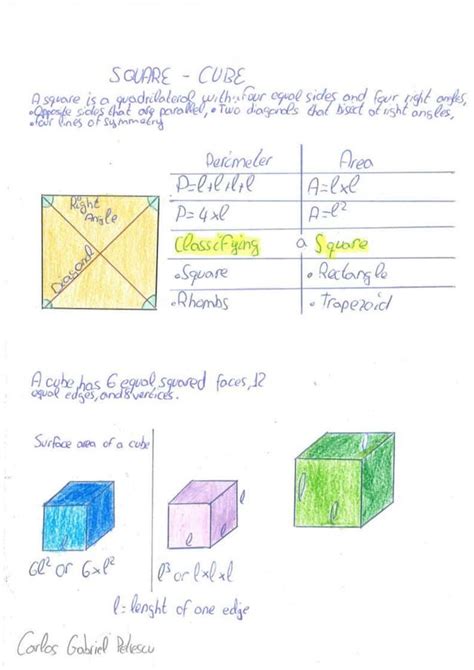 SQUARE - CUBE
A square is a quadrilateral with: four equal sides and four right angles,
• Opposite sides that are parallel, • Two diagonals that bisect at right angles,
• four lines of symmetry
Perimeter Area
P=l+l+l+l A=l×l
P=4×l A=l²
Classifying a Square
• Square • Rectangle
• Rhombs • Trapezoid
Right
Angle
Diagonal
A cube has 6 equal, squared faces, 12
equal edges, and 8 vertices.
Surface area of a cube
l
l
l
l
l
l
l
6l² or 6×l² l³ or l×l×l
l = lenght of one edge
Carlos Gabriel